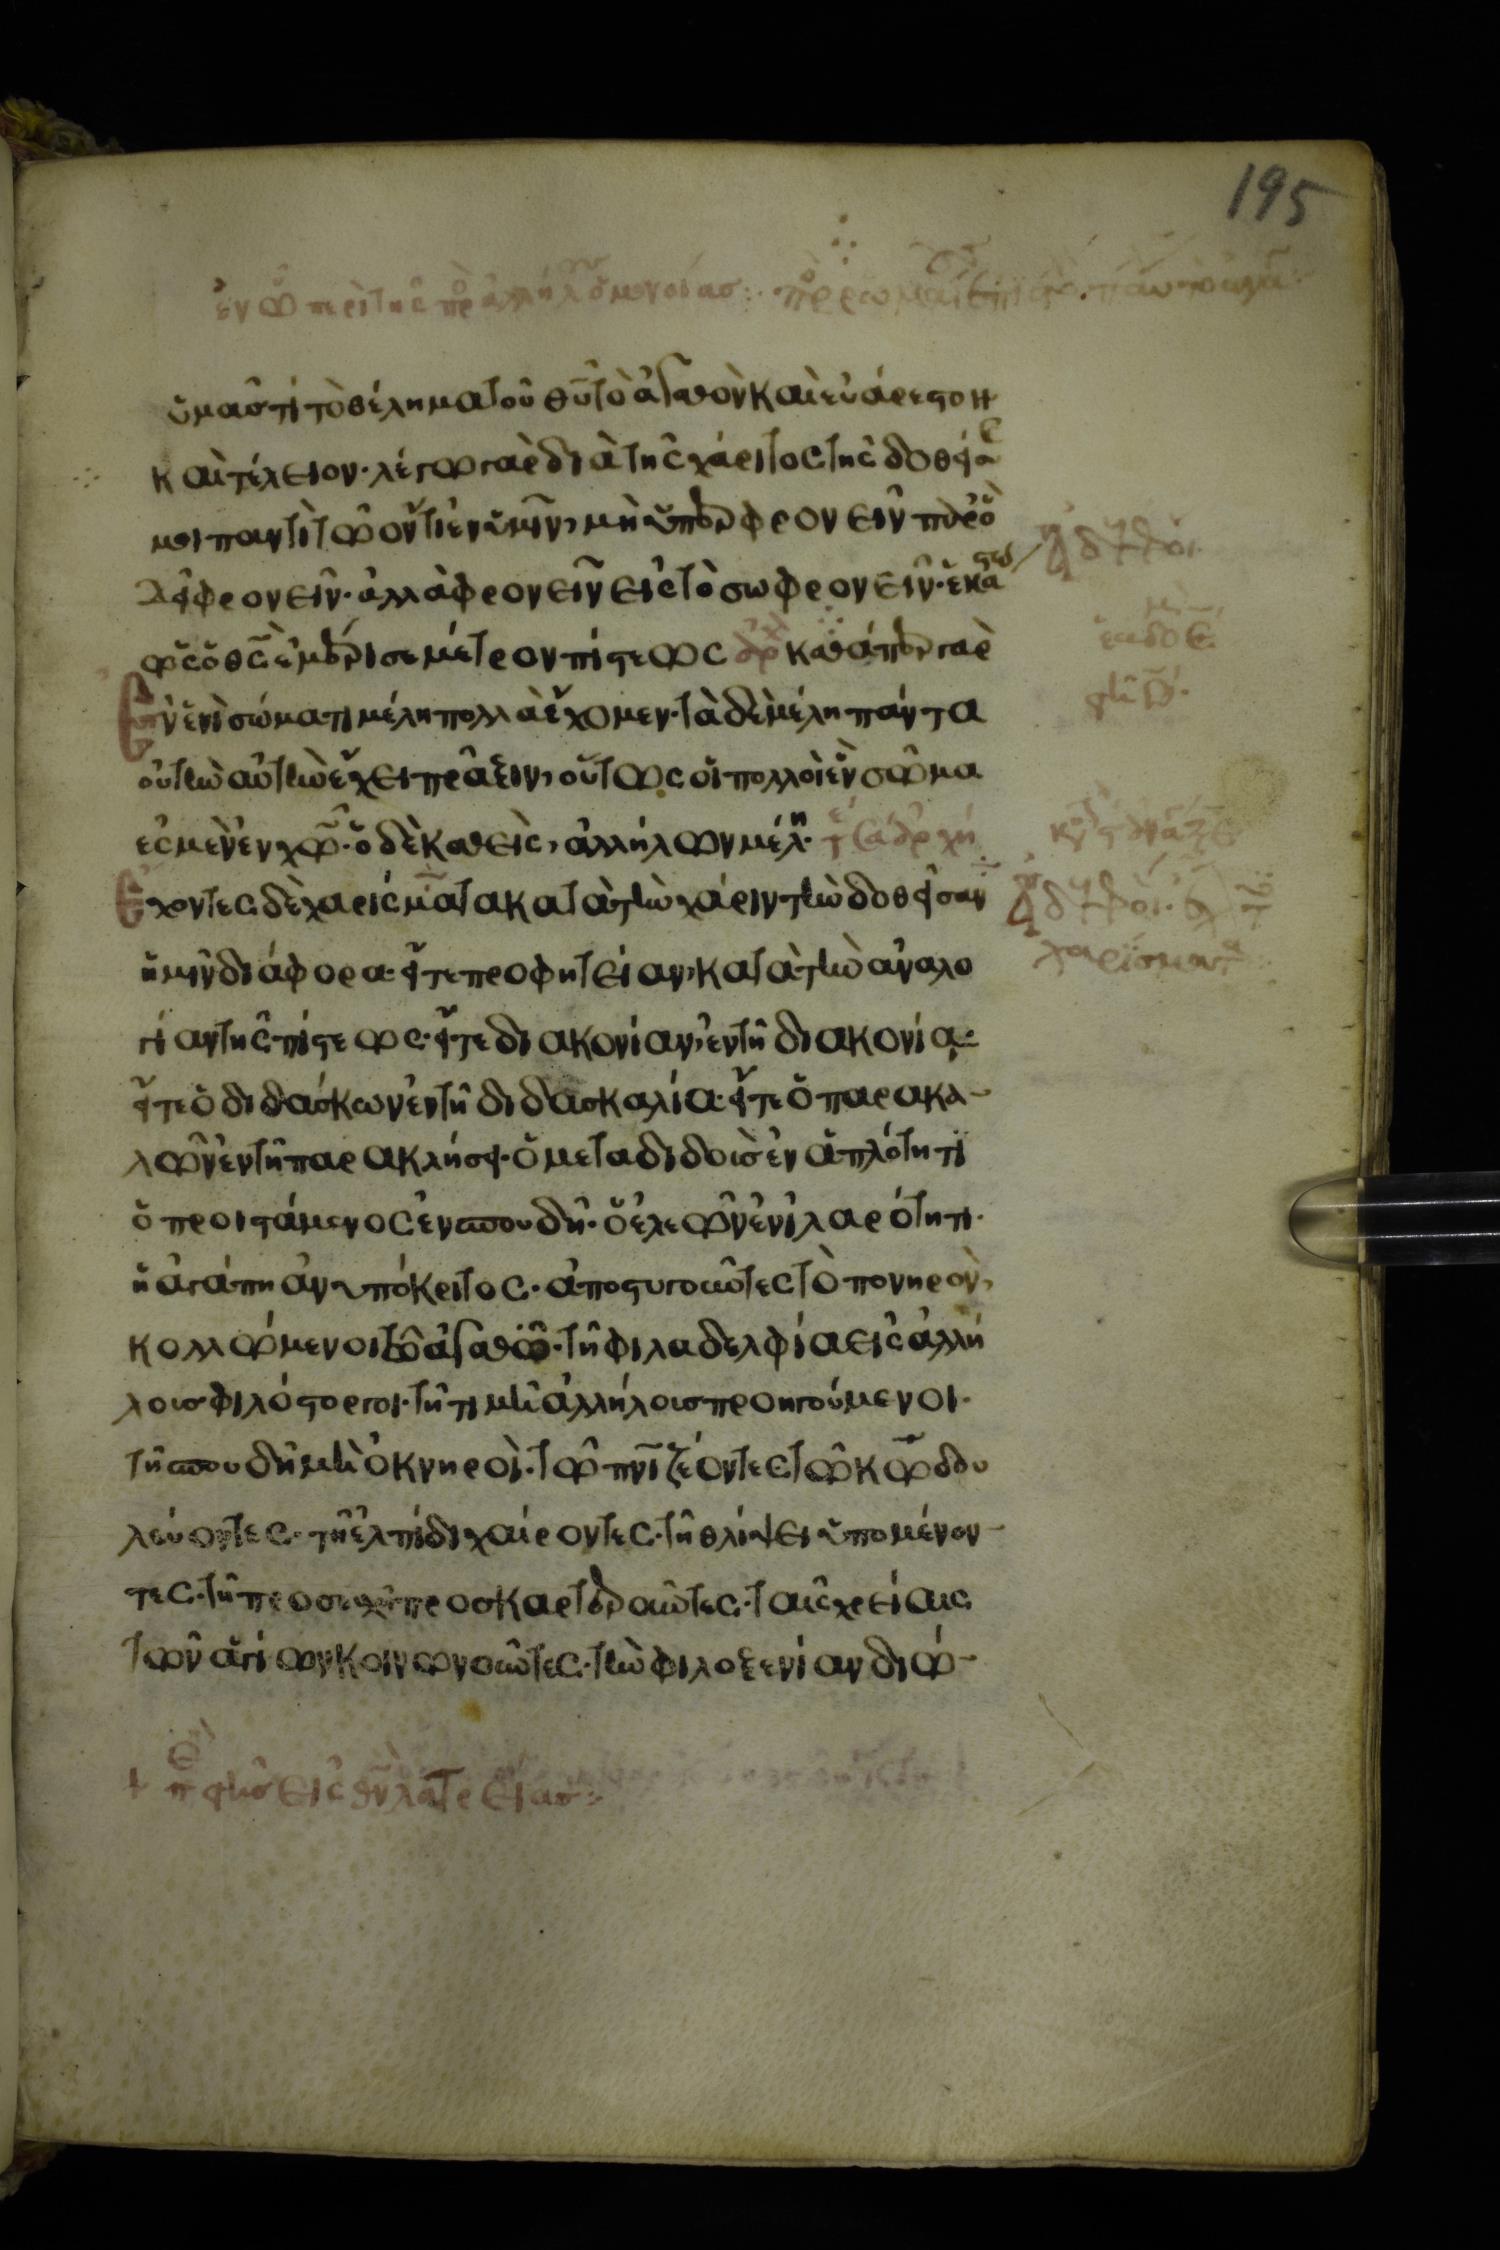 195
ἐν ᾧ περὶ τῆς πρ ἀλλήλ ὁμονοίας:
ὑμᾶς τί τὸ θέλημα τοῦ θυ τὸ ἀγαθὸν καὶ εὐάρεστον
καὶ τέλειον· λέγω γὰρ διὰ τῆς χάριτος τῆς δοθείσης
μοι παντὶ τῷ ὄντι ἐν ὑμῖν, μὴ ὑπερφρονεῖν παρ ὃ
δεῖ φρονεῖν· ἀλλὰ φρονεῖν εἰς τὸ σωφρονεῖν· ἑκάστω
ὡς ὁ θς ἐμέρισε μέτρον πίστεως καθάπερ γὰρ
Ἐν ἑνὶ σώματι μέλη πολλὰ ἔχομεν· τὰ δὲ μέλη πάντα
οὐ τὴν αὐτὴν ἔχει πρᾶξιν, οὕτως οἱ πολλοὶ ἓν σῶμα
ἐσμὲν ἐν χῶ· ὁ δὲ καθεῖς, ἀλλήλων μέλη·
Ἔχοντες δὲ χαρίσματα κατὰ τὴν χάριν τὴν δοθεῖσαν
ἡμῖν διάφορα· εἴτε προφητείαν, κατὰ τὴν ἀναλο
γίαν τῆς πίστεως· εἴτε διακονίαν, ἐν τῆ διακονία:
εἴτε ὁ διδάσκων ἐν τῆ διδασκαλία· εἴτε ὁ παρακα
λῶν ἐν τῆ παρακλήσει· ὁ μεταδιδοὺς ἐν ἁπλότητι
ὁ προιστάμενος ἐν σπουδῆ· ὁ ἐλεῶν ἐν ἱλαρότητι·
ἡ ἀγάπη ἀνυπόκριτος· ἀποστυγοῦντες τὸ πονηρὸν,
κολλώμενοι τῶ ἀγαθῶ· τῆ φιλαδελφία εἰς ἀλλή
λοις φιλόστοργοι· τῆ τιμῆ ἀλλήλοις προηγούμενοι·
τῆ σπουδῆ μὴ ὀκνηροὶ· τῶ πνι ζέοντες τῶ κω δου
λεύοντες· τῆ ἐλπίδι χαίροντες· τῆ θλίψει ὑπομένον
τες· τῆ προσευχῆ προσκαρτεροῦντες· ταῖς χρείαις
τῶν ἁγίων κοινωνοῦντες· τὴν φιλοξενίαν διώ